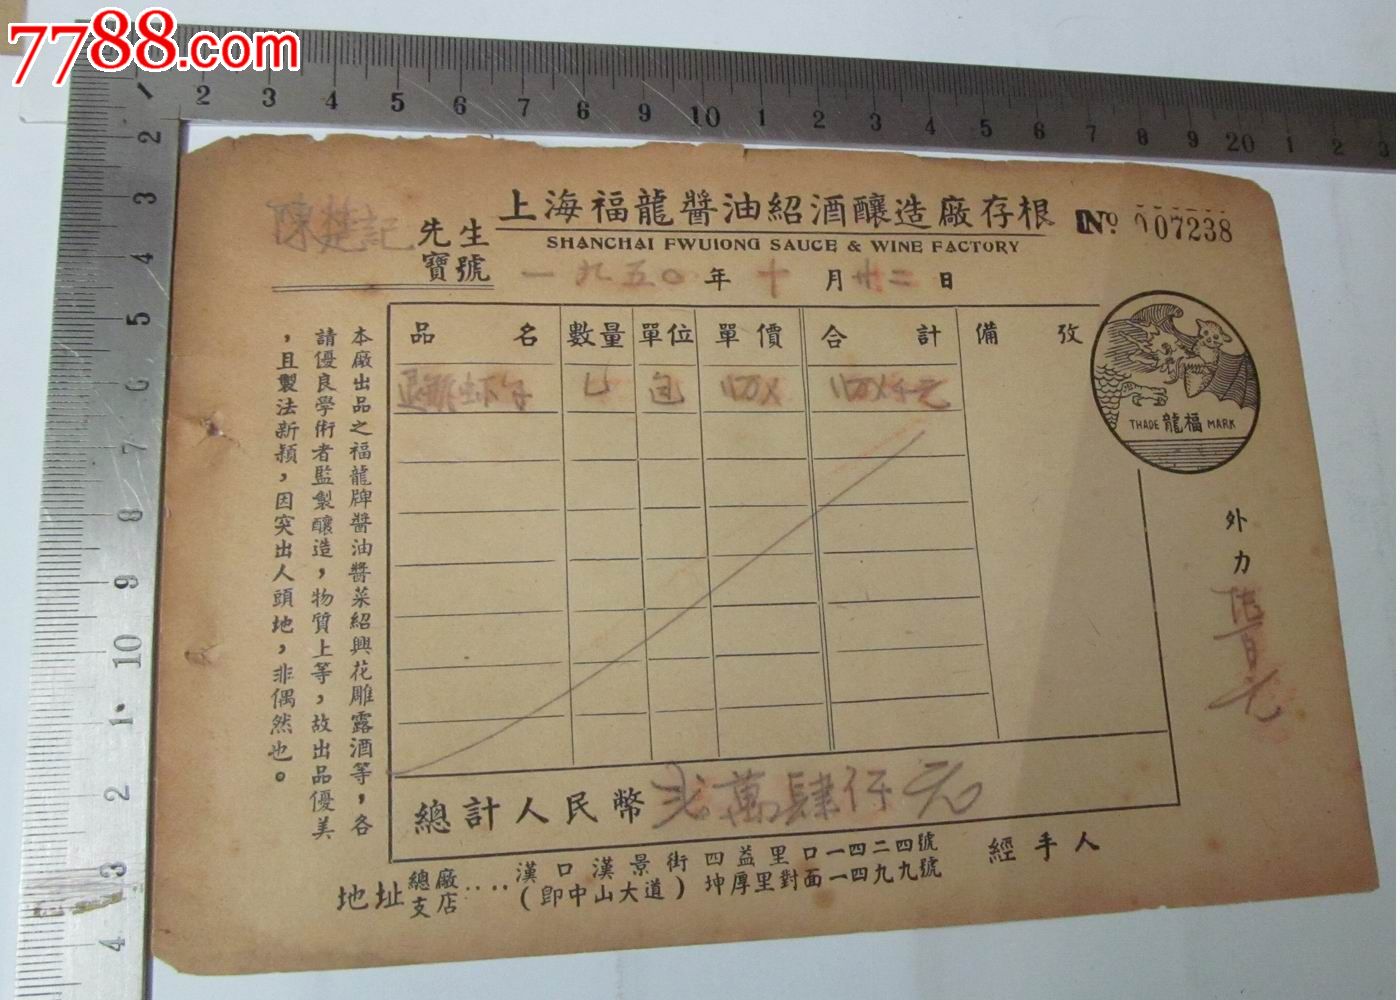 7788.com
上海福龍醬油紹酒釀造廠存根
No. 007238
SHANCHAI FWUIONG SAUCE & WINE FACTORY
陳楚記 先生
寶號
一九五〇年十月廿二日
品名 數量 單位 單價 合計 備攷
THADE 龍福 MARK
外力
總計人民幣 弍萬肆仟元
地址 總廠 支店
漢口漢景街四益里口一四二四號
(卽中山大道) 坤厚里對面一四九九號
經手人
本廠出品之福龍牌醬油醬菜紹興花雕露酒等，各
請優良學術者監製釀造，物質上等，故出品優美
，且製法新穎，因突出人頭地，非偶然也。
1 2 3 4 5 6 7 8 9 10 1 2 3 4 5 6 7 8 9 20 1 2 3
2 3 4 5 6 7 8 9 10 1 2 3 4